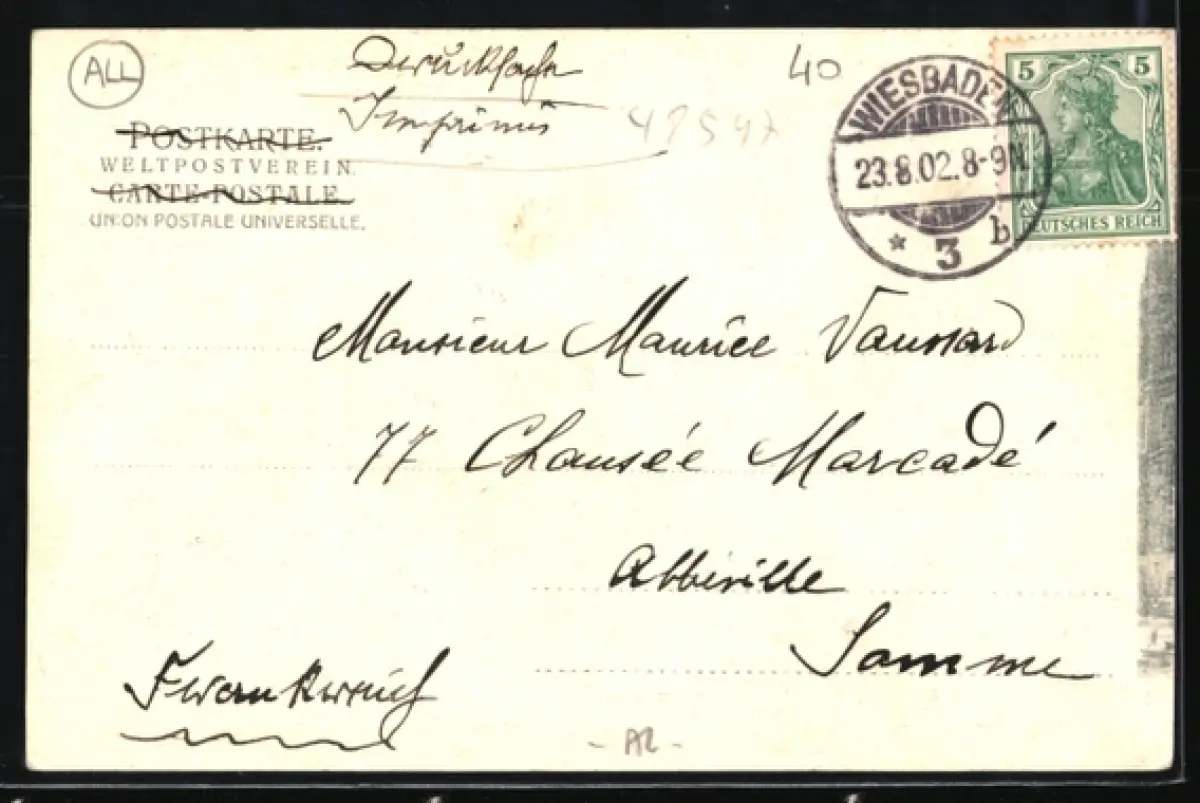 ALL
Drucksache
Imprimés
40
49547
POSTKARTE.
WELTPOSTVEREIN.
CARTE POSTALE.
UNION POSTALE UNIVERSELLE.
WIESBADEN
23.8.02.8-9N.
* 3 b
5 5
DEUTSCHES REICH
Monsieur Maurice Vaussard
77 Chausée Marcadé
Abbeville
Somme
Frankreich